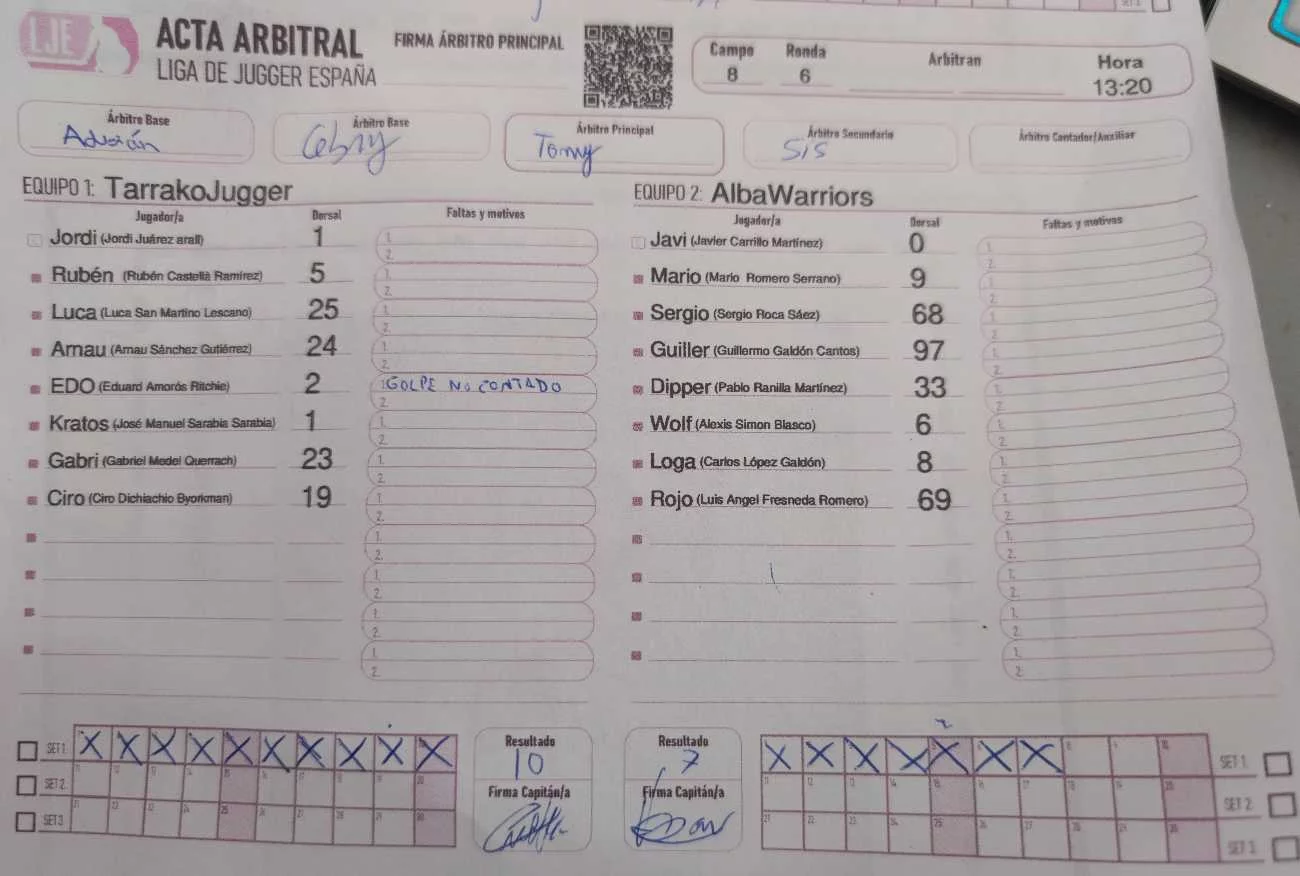 LJE
ACTA ARBITRAL
LIGA DE JUGGER ESPAÑA
FIRMA ÁRBITRO PRINCIPAL
Campo Ronda Arbitran Hora
8 6 13:20
Árbitro Base Árbitro Base Árbitro Principal Árbitro Secundario Árbitro Contador/Auxiliar
Adrián Tommy SiS
EQUIPO 1: TarrakoJugger
Jugador/a Dorsal Faltas y motivos
Jordi (Jordi Juárez arall) 1 1. 2.
Rubén (Rubén Castellà Ramírez) 5 1. 2.
Luca (Luca San Martino Lescano) 25 1. 2.
Arnau (Arnau Sánchez Gutiérrez) 24 1. 2.
EDO (Eduard Amorós Ritchie) 2 1. GOLPE NO CONTADO 2.
Kratos (José Manuel Sarabia Sarabia) 1 1. 2.
Gabri (Gabriel Medel Querrach) 23 1. 2.
Ciro (Ciro Dichiachio Byorkman) 19 1. 2.
1. 2.
1. 2.
1. 2.
1. 2.
EQUIPO 2: AlbaWarriors
Jugador/a Dorsal Faltas y motivos
Javi (Javier Carrillo Martínez) 0 1. 2.
Mario (Mario Romero Serrano) 9 1. 2.
Sergio (Sergio Roca Sáez) 68 1. 2.
Guiller (Guillermo Galdón Cantos) 97 1. 2.
Dipper (Pablo Ranilla Martínez) 33 1. 2.
Wolf (Alexis Simon Blasco) 6 1. 2.
Loga (Carlos López Galdón) 8 1. 2.
Rojo (Luis Angel Fresneda Romero) 69 1. 2.
1. 2.
1. 2.
1. 2.
1. 2.
SET 1 X X X X X X X X X X
SET 2 11 12 13 14 15 16 17 18 19 20
SET 3 21 22 23 24 25 26 27 28 29 30
Resultado
10
Firma Capitán/a
Resultado
7
Firma Capitán/a
X X X X X X X 8 9 10 SET 1
11 12 13 14 15 16 17 18 19 20 SET 2
21 22 23 24 25 26 27 28 29 30 SET 3